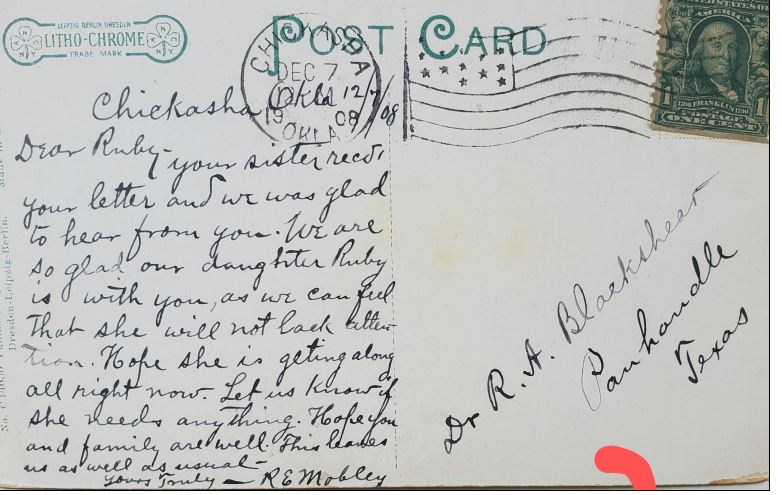 LEIPZIG BERLIN DRESDEN
LITHO-CHROME
TRADE MARK
N Y
N Y
POST CARD
CHICKASHA
DEC 7
1908
OKLA
UNITED STATES
OF AMERICA
1
1706 FRANKLIN 1790
POSTAGE
ONE CENT
1
Chickasha Okla 12/7/08
Dear Ruby - your sister recd.
your letter and we was glad
to hear from you. We are
so glad our daughter Ruby
is with you, as we can feel
that she will not lack atten-
tion. Hope she is geting along
all right now. Let us know if
she needs anything. Hope you
and family are well. This leaves
us as well as usual -
Yours Truly - R E Mobley
Dr R. A. Blackshear
Panhandle
Texas
Dresden-Leipzig-Berlin.
No.